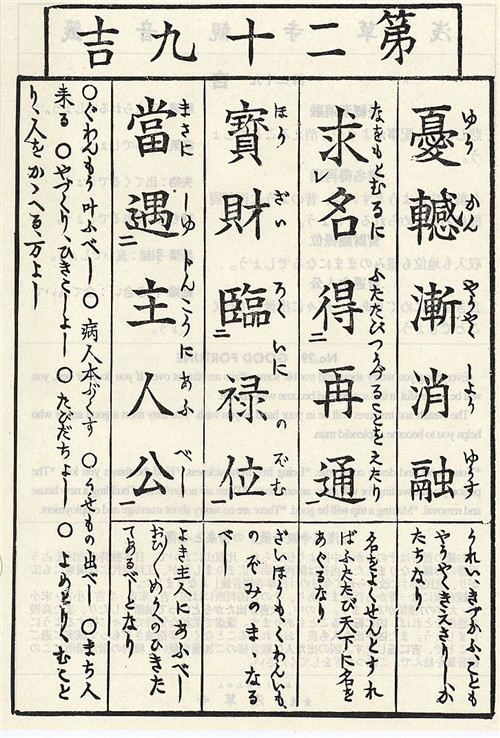 第二十九吉
憂轗漸消融
ゆう かん やうやく しよう ゆうす
うれい、きづかふことも
やうやくきえさりしか
たちなり
求レ名得二再通一
なをもとむるに ふたたびつうずることをえたり
名をよくせんとすれ
ばふたたび天下に名を
あぐるなり
寶財臨二禄位一
ほう ざい ろくいに のぞむ
ざいほうも
のぞみのまゝなる
べし
當遇二主人公一
まさに しゆじんこうに あふべし
よき主人にあふべし
ひきた
てあるべしとなり
○ぐわんもう叶ふべし ○病人本ぶくす ○うせもの出べし ○まち人
来る ○やづくり、ひきこしよし ○たびだちよし ○よめどり、むこと
り、人をかゝへる、万よし